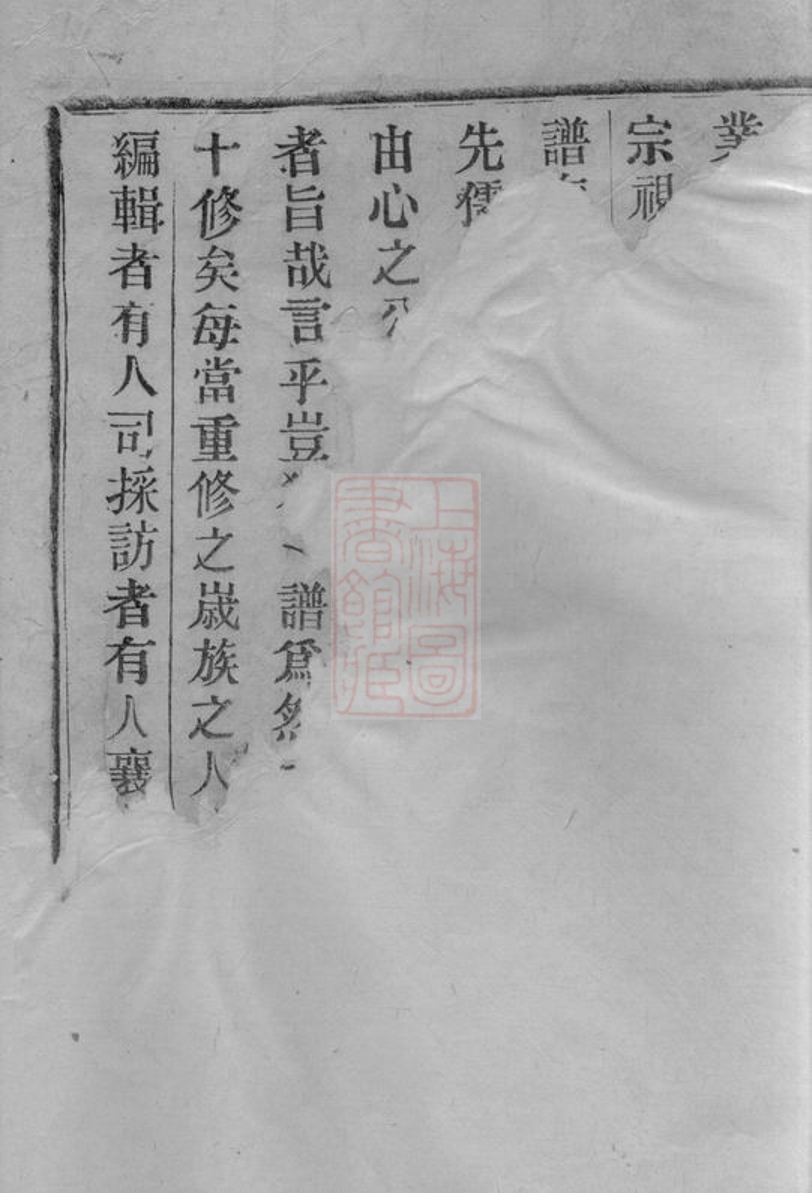 業
宗視
譜
先儒
由心之公
者旨哉言乎豈譜爲名
十修矣每當重修之歲族之人
編輯者有人司採訪者有人襄
上海圖書館藏